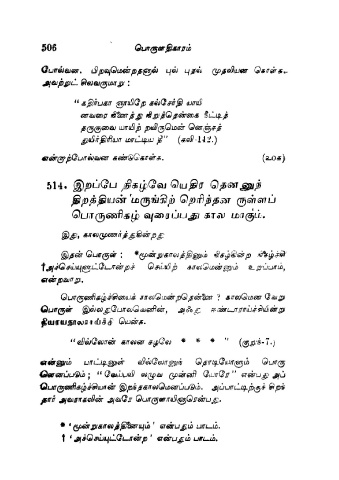 506 பொருளதிகாரம்
போல்வன. பிறவுமென்றதனுல் புல் புதல் முதலியன கொள்க.
அவற்றுட் சிலவருமாறு :
"கதிர்பகா ஞாயிறே கல்சேர்தி யாயி
னவரை நினைத்து நிறுத்தென்கை நீட்டித்
தருகுவை யாயிற் றவிருமென் னெஞ்சத்
துயிர்திரியா மாட்டிய தீ" (கலி-142.)
என்றற்போல்வன கண்டுகொள்க. (௨௦௧)
514. இறப்பே நிகழ்வே யெதிர தெனனுந்
திறத்தியன் மருங்கிற் றெரிந்தன ருள்ளப்
பொருணிகழ் வுரைப்பது கால மாகும்.
இது, காலமுணர்த்துகின்றது
இதன் பொருள் : *மூன்றுகாலத்தினும் நிகழ்கின்ற நிகழ்ச்சி
†அச்செய்யுளுட்டோன்றச் செய்யிற் காலமென்னும் உறுப்பாம்,
என்றவாறு.
பொருணிகழ்ச்சியைக் காலமென்றதென்னை ? காலமென வேறு
பொருள் இல்லதுபோலவெனின், அஃது ஈண்டாராய்ச்சியின்று
நியாயநூலாராய்ச்சி யென்க.
"வில்லோன் காலன கழலே * * * " (குறுந்-7.)
என்னும் பாட்டினுள் வில்லோனுந் தொடியோளும் பொரு
ளெனப்படும் ; "வேய்பயி லழுவ முன்னி யோரே" என்பது அப்
பொருணிகழ்ச்சியான் இறந்தகாலமெனப்படும். அப்பாட்டிற்குச் சிறந்
தார் அவராகலின் அவரே பொருளாயினாரென்பது.
* 'மூன்றுகாலத்தினையும்' என்பதும் பாடம்.
† 'அச்செய்யுட்டோன்ற' என்பதும் பாடம்.